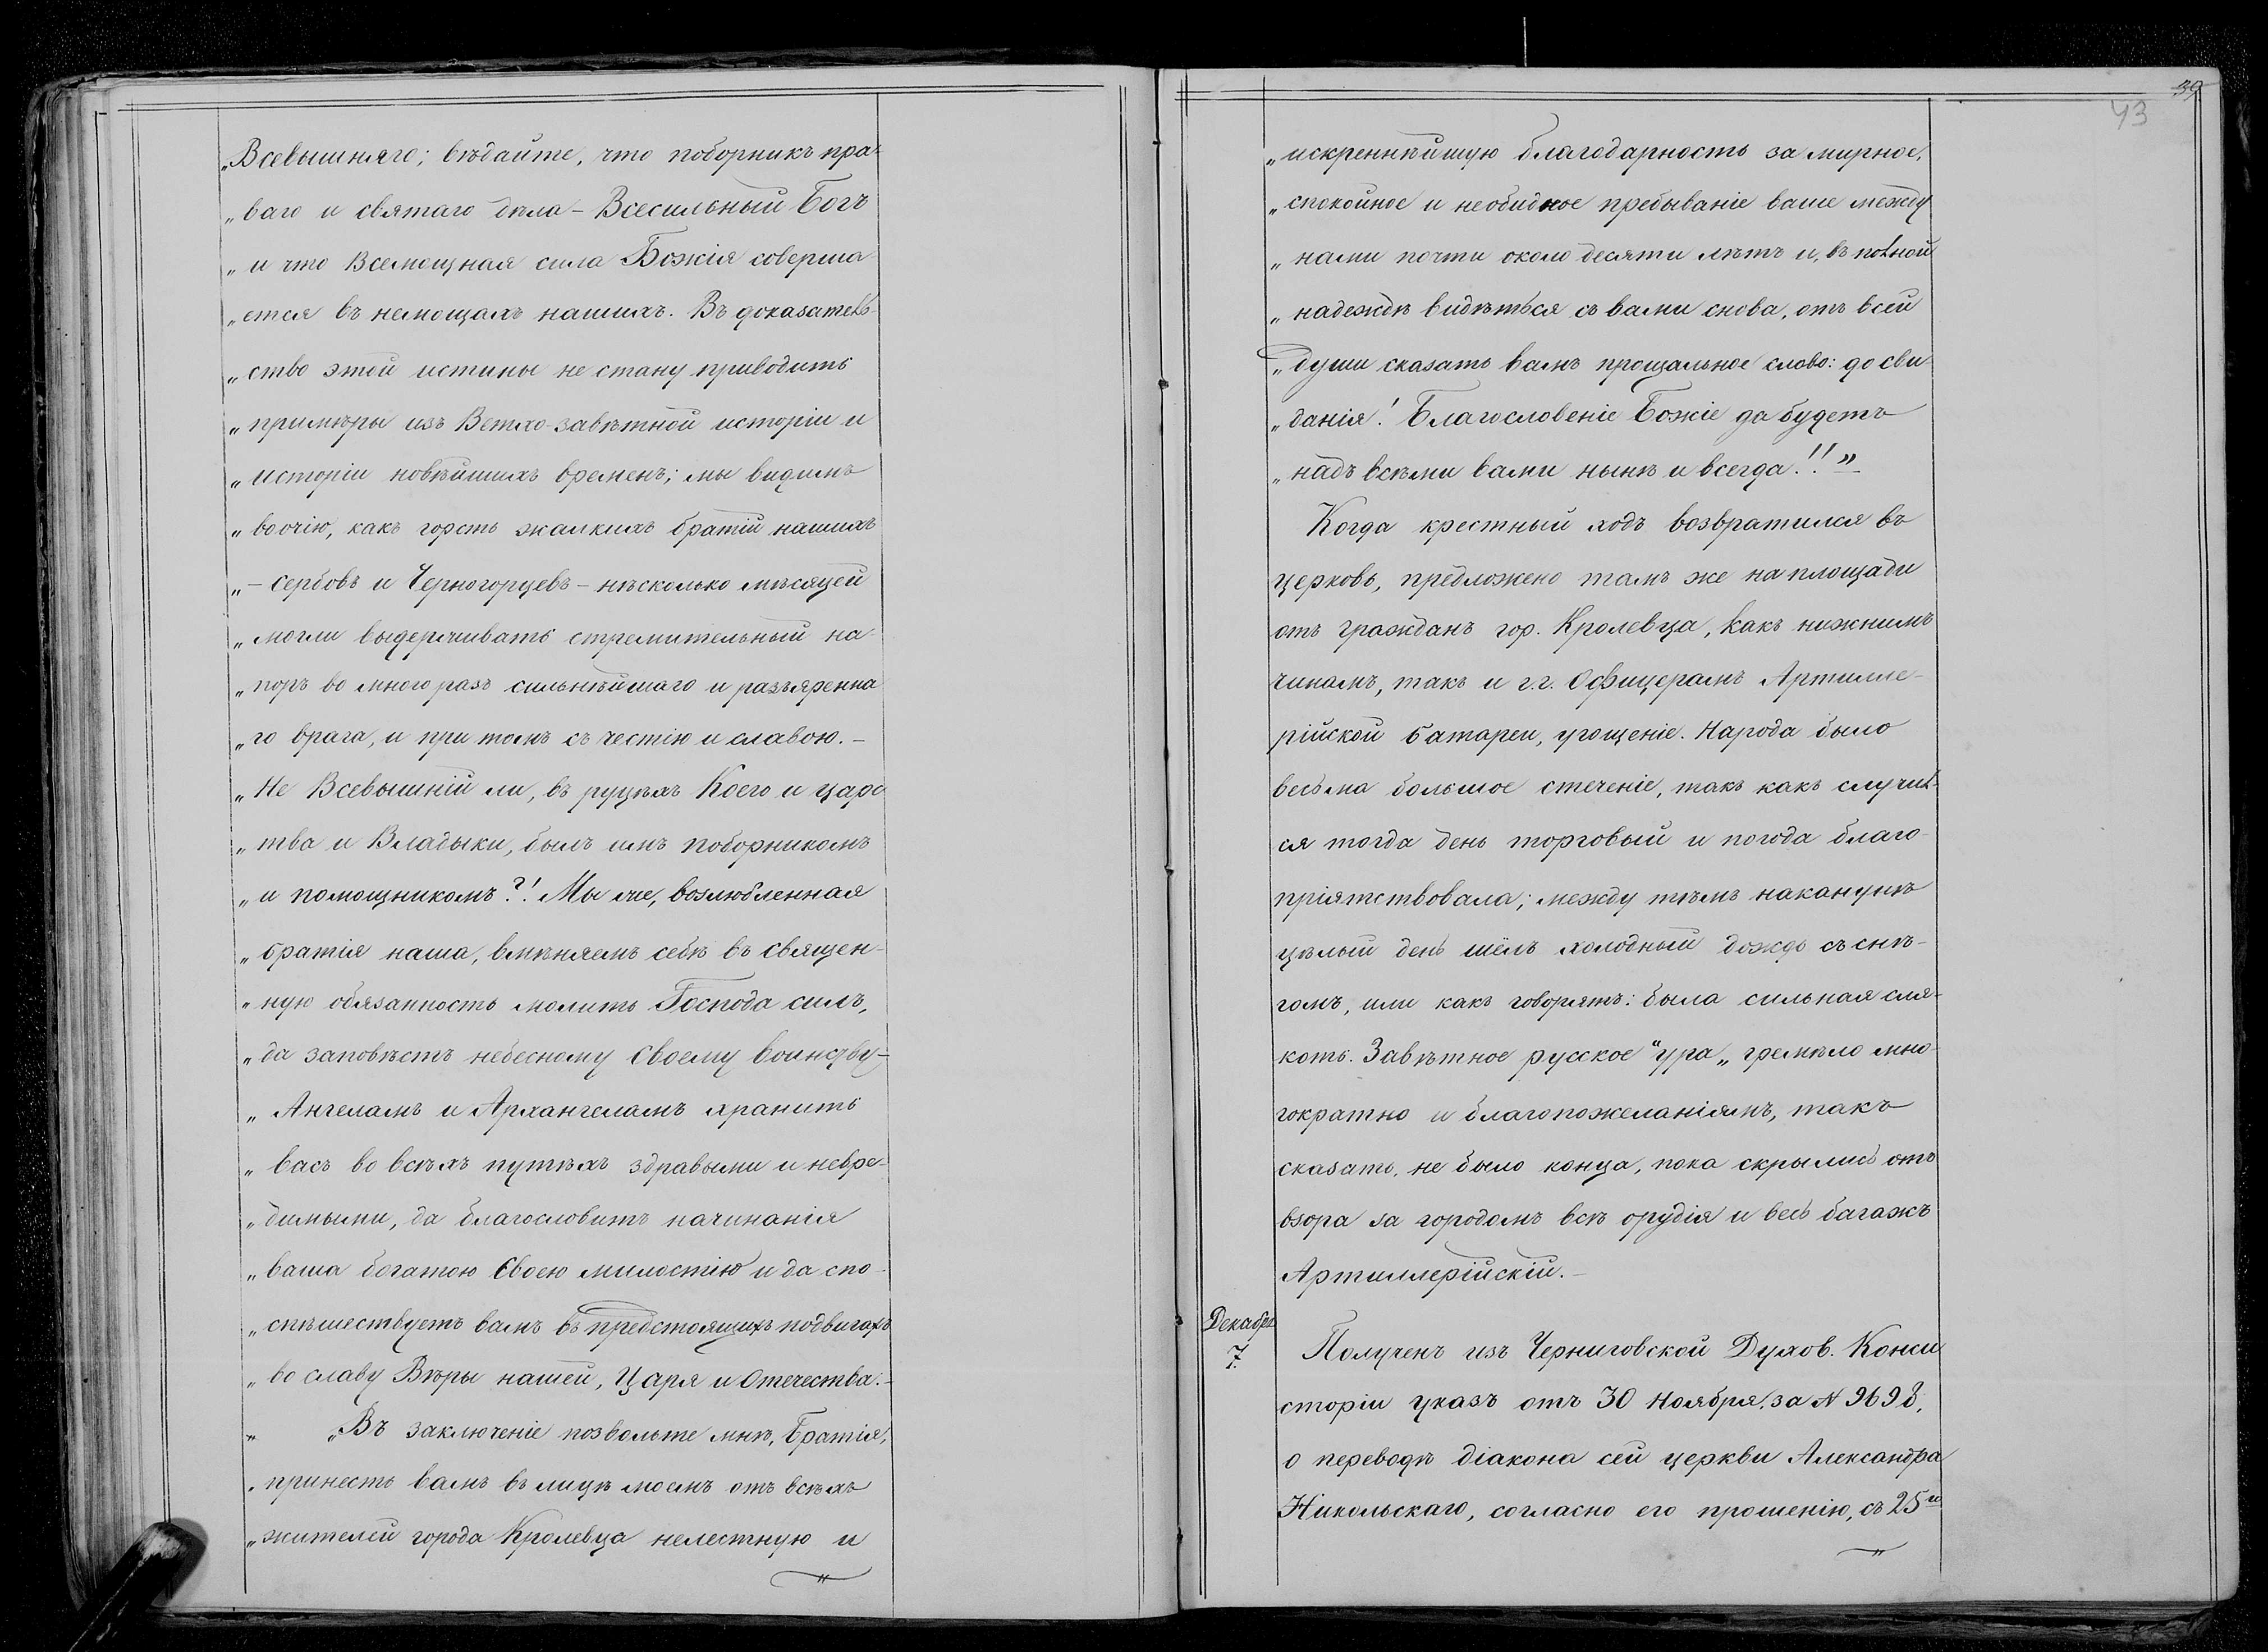 „Всевышняго; вѣдайте, что поборникъ пра-
„ваго и святаго дѣла – Всесильный Богъ
„и что Всемощная сила Божія соверша
„ется въ немощахъ нашихъ. Въ доказатель-
„ство этой истины не стану приводить
„примѣры изъ Ветхо-завѣтной исторіи и
„исторіи новѣйшихъ временъ; мы видимъ
„воочію, какъ горсть жалкихъ братій нашихъ
„– Сербовъ и Черногорцевъ – нѣсколько мѣсяцей
„могли выдерживать стремительный на-
„поръ во много разъ сильнѣйшаго и разъяренна
„го врага, и при томъ съ честію и славою. –
„Не Всевышній ли, въ руцѣхъ Коего и царс
„тва и Владыки, былъ имъ поборникомъ
„и помощникомъ?! Мы же, возлюбленная
„братія наша, вмѣняемъ себѣ въ священ-
„ную обязанность молить Господа силъ,
„да заповѣстъ небесному Своему воинству –
„Ангеламъ и Архангеламъ хранить
„васъ во всѣхъ путѣхъ здравыми и невре-
„димыми, да благословитъ начинанія
„ваша богатою Своею милостію и да спо-
„спѣшествуетъ вамъ въ предстоящихъ подвигахъ
„во славу Вѣры нашей, Царя и Отечества. –
„ „Въ заключеніе позвольте мнѣ, Братія,
„принесть вамъ въ лицѣ моемъ отъ всѣхъ
„жителей города Кролевца нелестную и
39
43
„искреннѣйшую благодарность за мирное,
„спокойное и необидное пребываніе ваше между
„нами почти около десяти лѣтъ и, въ полной
„надеждѣ видѣться съ вами снова, отъ всей
„души сказать вамъ прощальное слово: до сви
„данія! Благословеніе Божіе да будетъ
„надъ всѣми вами нынѣ и всегда!!"
Когда крестный ходъ возвратился въ
церковь, предложено тамъ же на площади
отъ гражданъ гор. Кролевца, какъ нижнимъ
чинамъ, такъ и г.г. Офицерамъ Артилле-
рійской батареи, угощеніе. Народа было
весьма большое стеченіе, такъ какъ случил-
ся тогда день торговый и погода благо-
пріятствовала; между тѣмъ наканунѣ
цѣлый день шёлъ холодный дождь съ снѣ-
гомъ, или какъ говорятъ: была сильная сля-
коть. Завѣтное русское "ура„ гремѣло мно-
гократно и благопожеланіямъ, такъ
сказать, не было конца, пока скрылись отъ
взора за городомъ всѣ орудія и весь багажъ
Артиллерійскій. –
Декабря
7. Полученъ изъ Черниговской Духов. Конси
сторіи указъ отъ 30 Ноября, за N 9698,
о переводѣ діакона сей церкви Александра
Никольскаго, согласно его прошенію, съ 25го